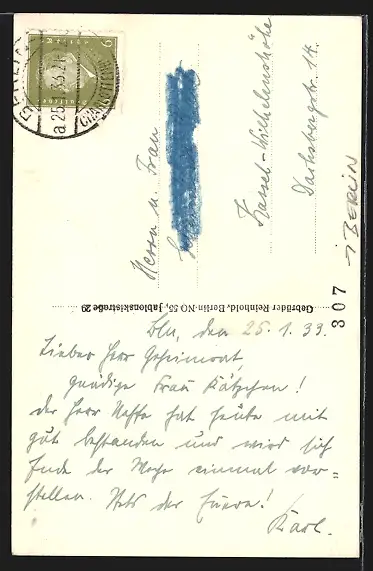 BERLIN-
CHARLOTTENBURG
a 25. 1. 33.
6
Herrn u. Frau
Kassel-Wilhelmshöhe
Dachsbergstr. 14.
→ BERLIN
307
Gebrüder Reinhold, Berlin-NO 55, Jablonskistraße 29
Bln, den 25.1.33.
Lieber Herr Geheimrat,
gnädige Frau Kätzchen!
Der Herr Neffe hat heute mit
gut bestanden und wird sich
Ende der Woche einmal vor=
stellen. Stets der Euere!
Karl.